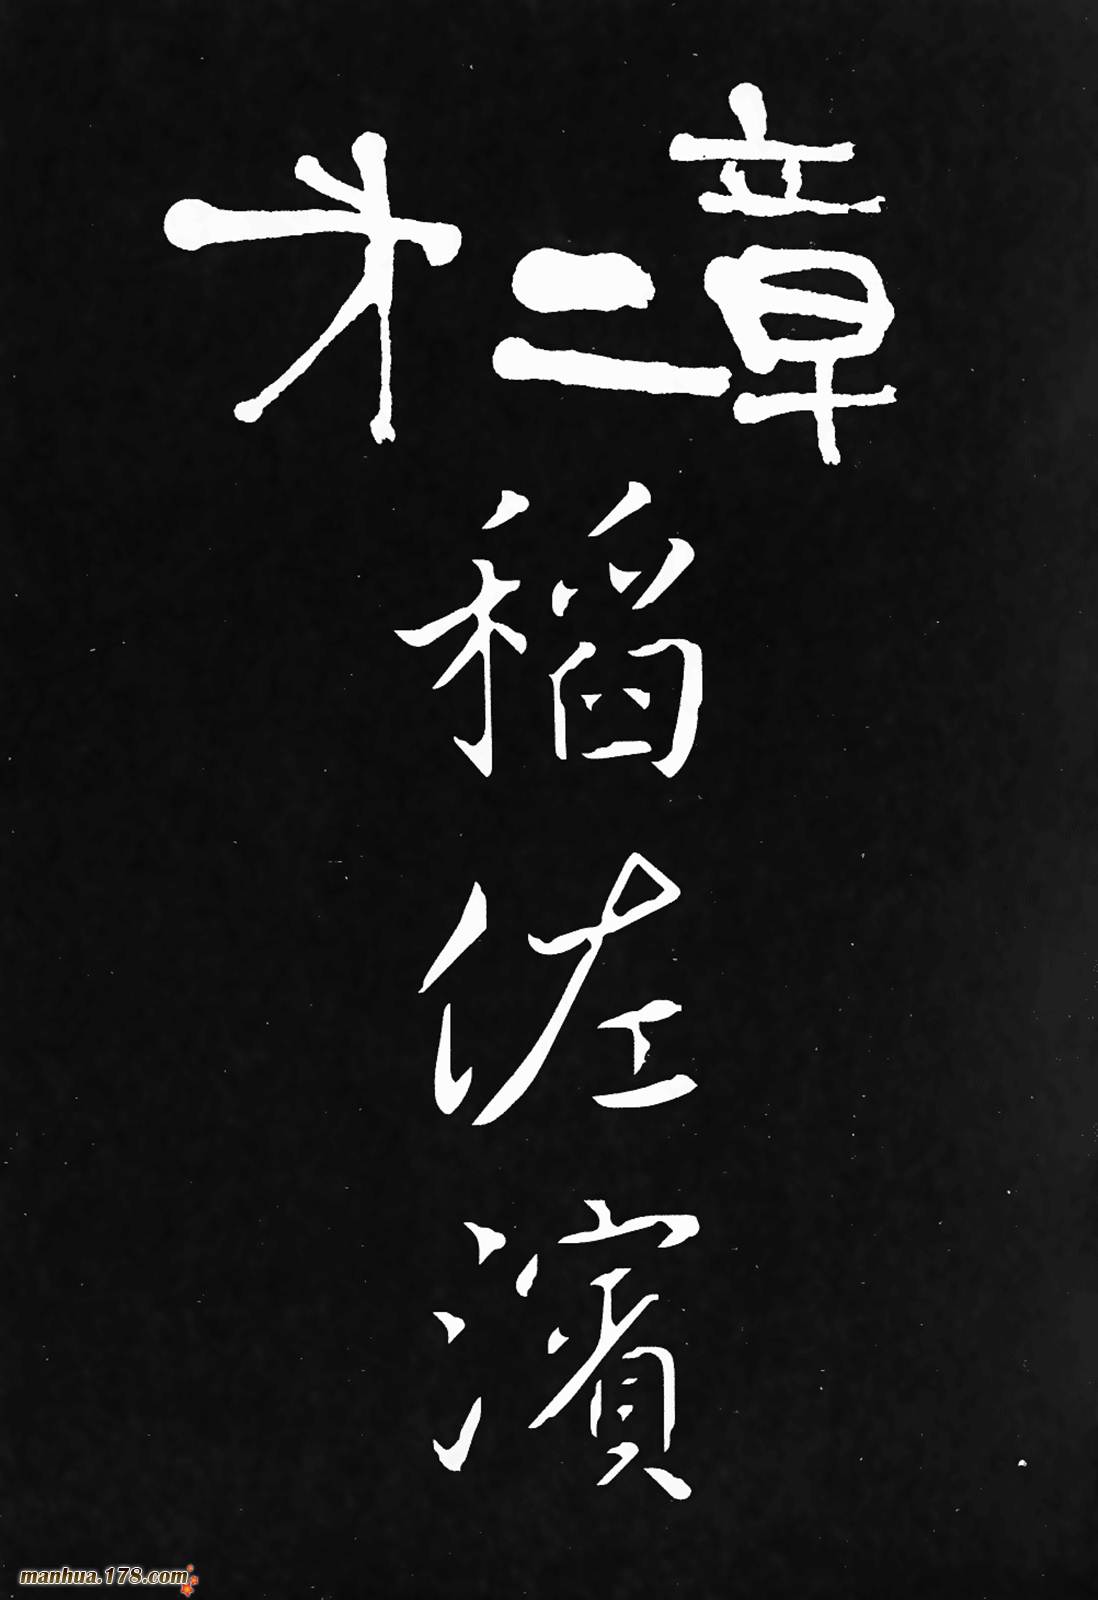 才二章
稻佐濱
manhua.178.com